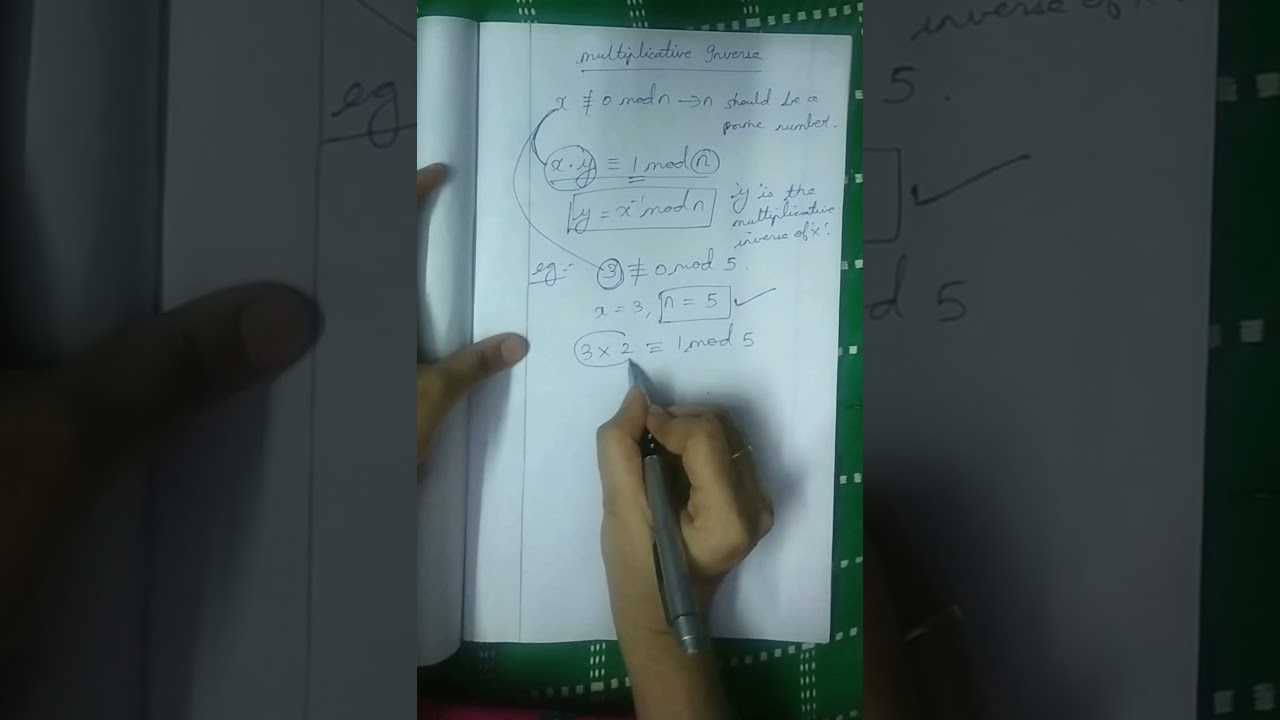 multiplicative Inverse
x ≢ 0 mod n → n should be a
prime number.
x · y ≡ 1 mod n
y = x⁻¹ mod n
'y' is the
multiplicative
inverse of 'x'.
eg:- 3 ≢ 0 mod 5.
x = 3, n = 5 ✓
3 × 2 ≡ 1 mod 5
eg
inverse of x
5.
d 5